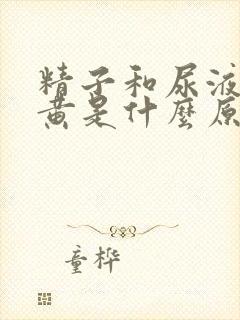 精子和尿液
黄是什麼原
童桦